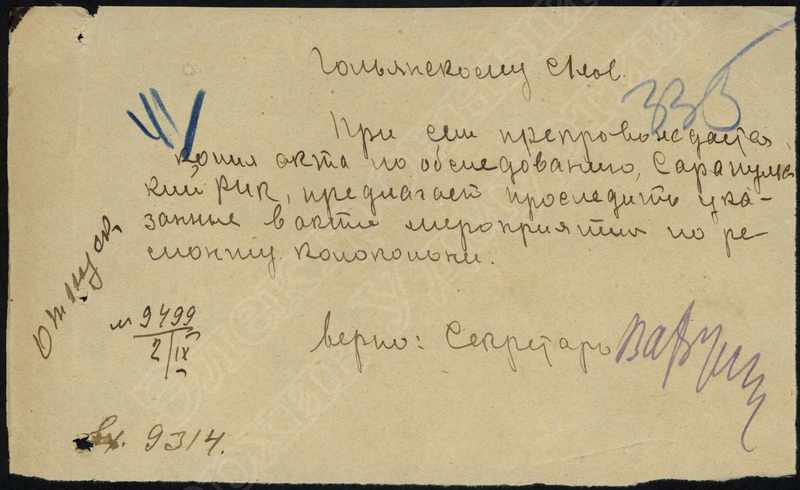 Гольянскому с/сов.
335
При сем препровождается
копия акта по обследованию, Сарапульс
кий РИК, предлагает проследить ука-
занные в акте мероприятия по ре
монту колокольни.
Отпуск.
№ 9499
2/IX
верно: Секретарь
вх. 9314.